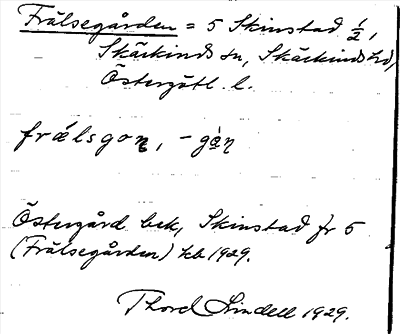 Frälsegården = 5 Skinstad ½,
Skärkinds sn, Skärkinds hd,
Östergötl. l.
frǽlsgoṇ, -gàṇ
Östergård bek, Skinstad fr 5
(Frälsegården) kb 1929.
Thord Lindell 1929.